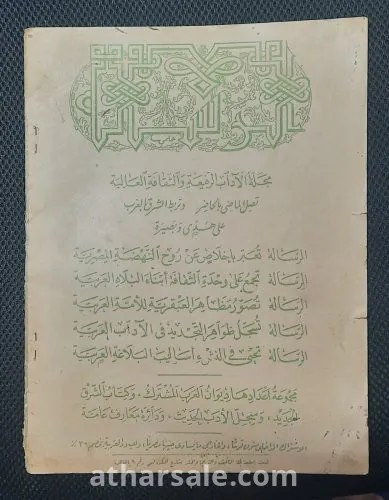 الرسالة
مجلة الآداب الرفيعة والثقافة العالية
تصل الماضي بالحاضر وتربط الشرق بالغرب
على هدى وبصيرة
الرسالة تعبر بإخلاص عن روح النهضة المصرية
الرسالة تجمع على وحدة الثقافة أبناء البلاد العربية
الرسالة تصور مظاهر العبقرية للأمة العربية
الرسالة تسجل ظواهر التجديد في الآداب العربية
الرسالة تحيي في النشء أساليب البلاغة العربية
مجموعة أعدادها ديوان العرب المشترك، وكتاب الشرق
الجديد، وسجل الأدب الحديث، ودائرة معارف عامة
الاشتراك الداخلي ستون قرشا، والخارجي ما يساوي جنيها مصريا، وللبلاد العربية بخصم ٢٠٪
atharsale.com